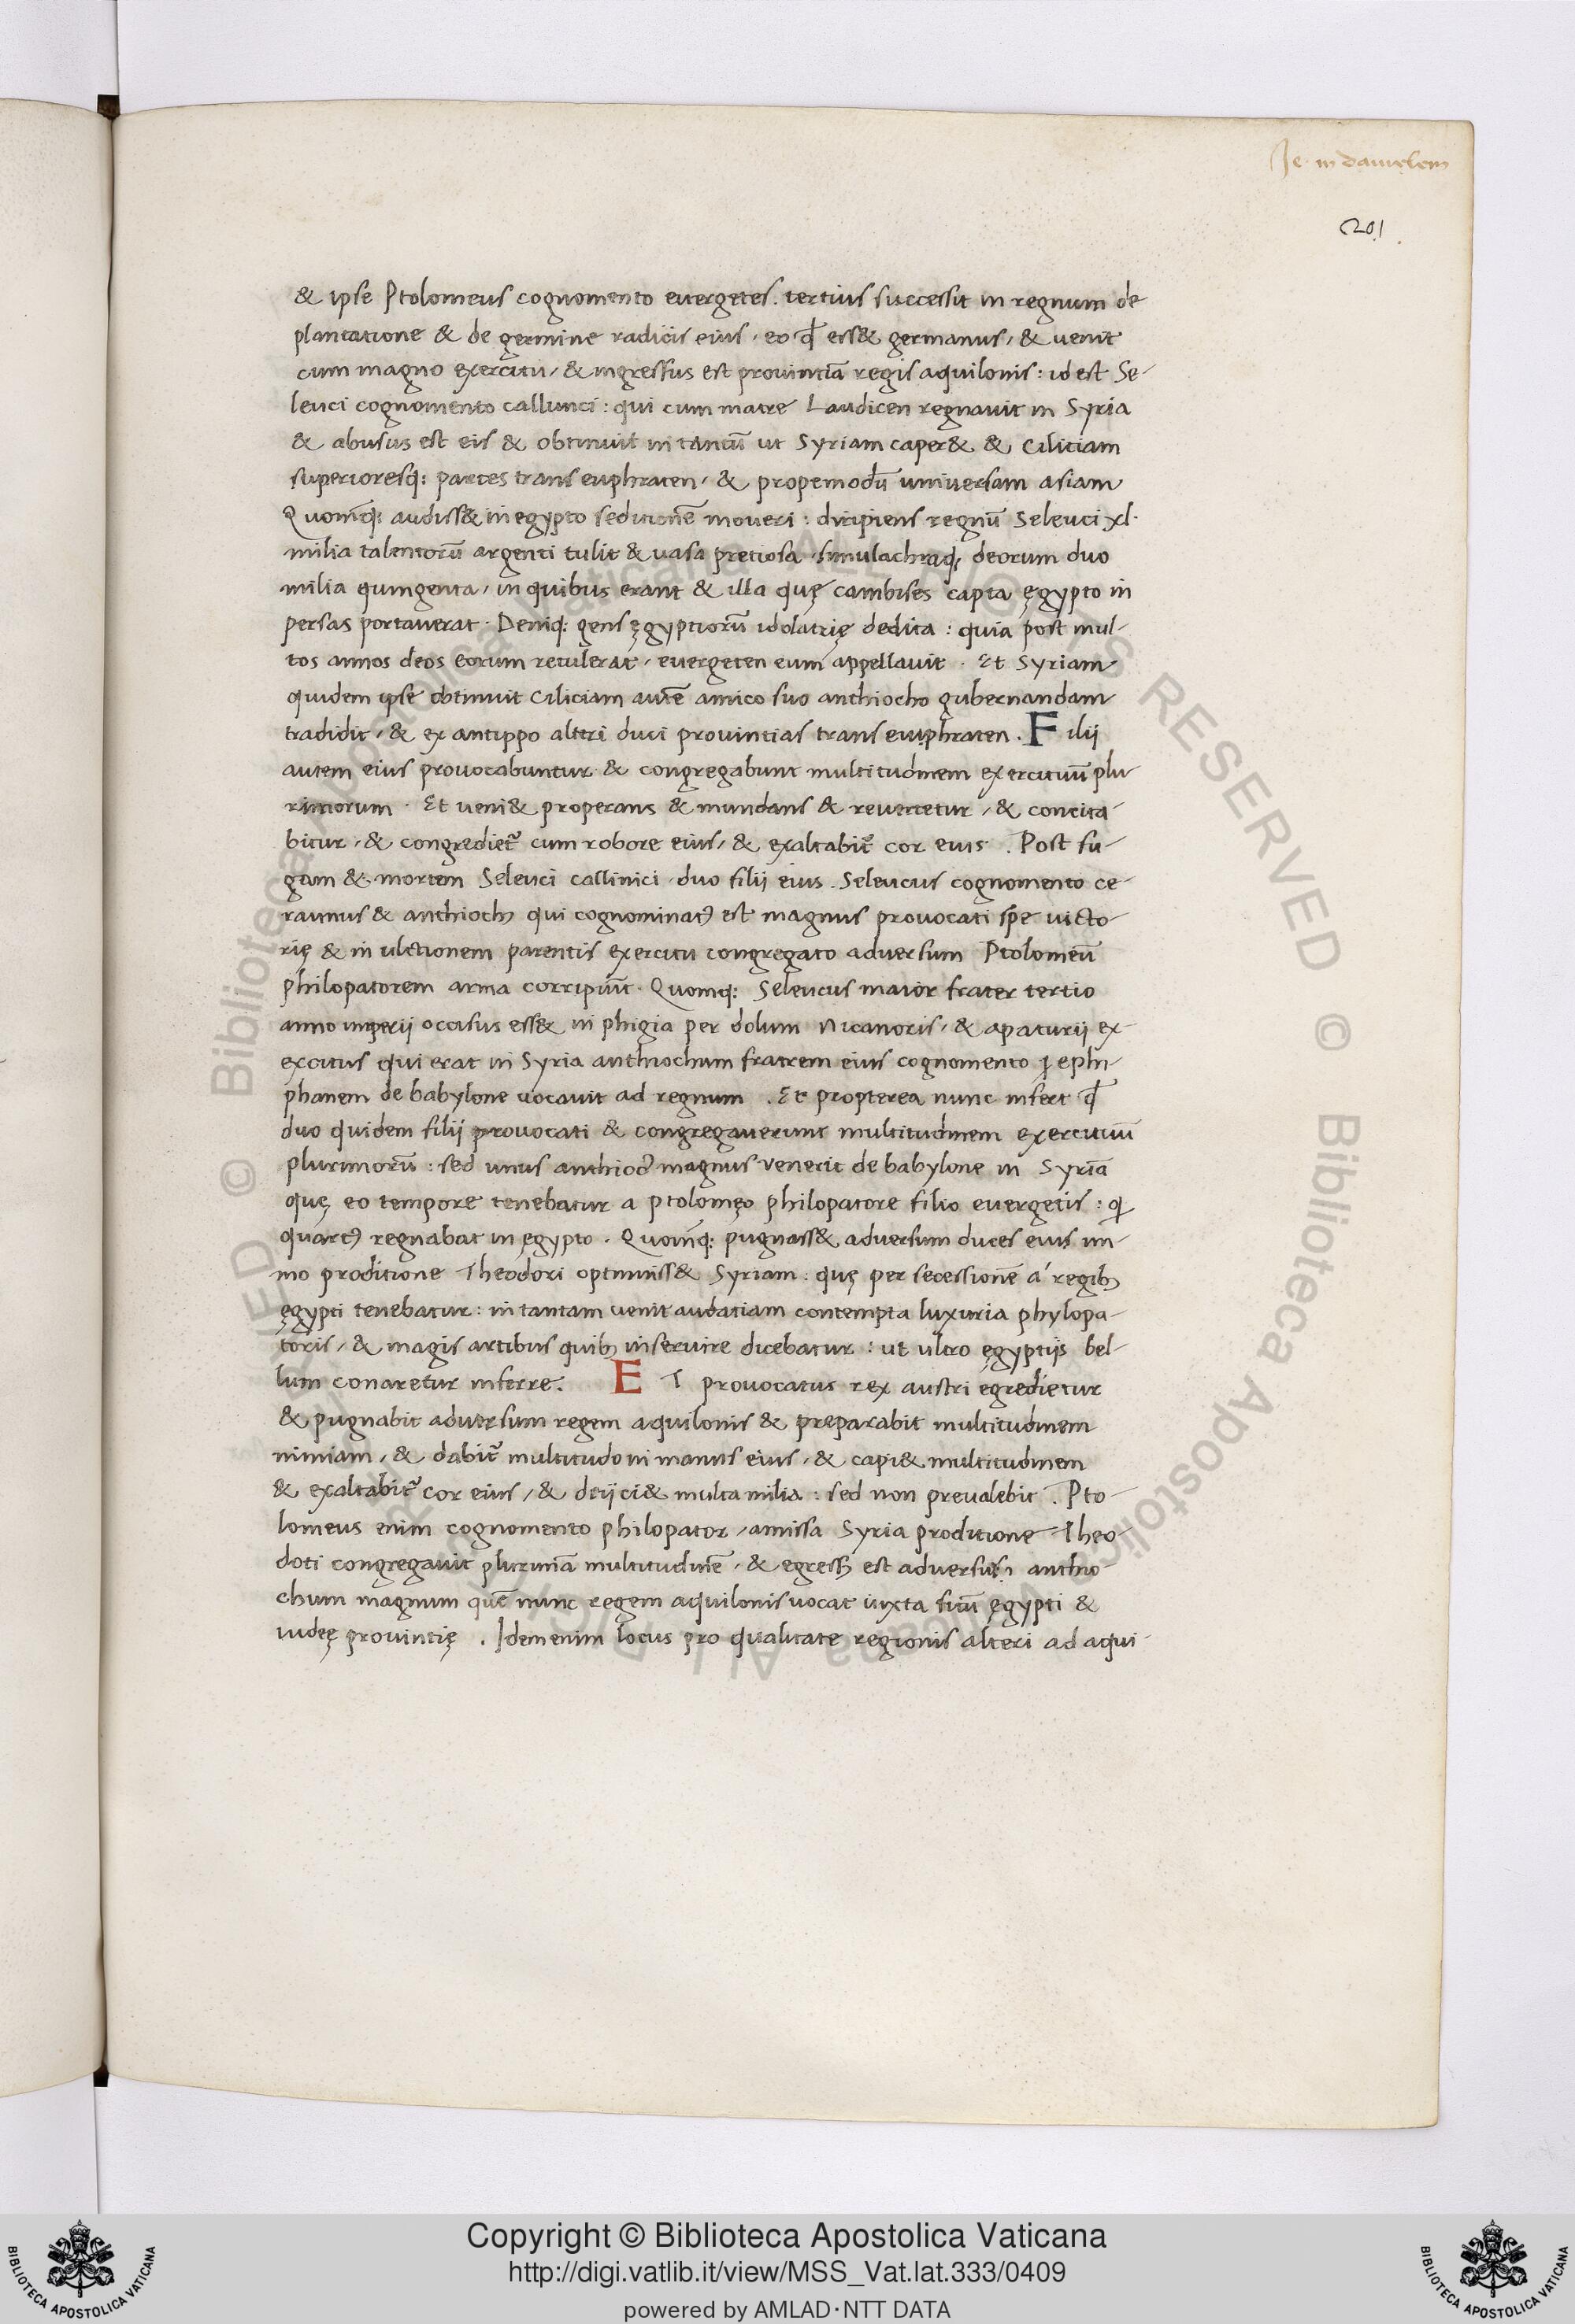 Je. in danielem
201
& ipse Ptolomeus cognomento euergetes. tertius successit in regnum de
plantatione & de germine radicis eius, eo ꝙ ess& germanus, & uenit
cum magno exercitu, & ingressus est prouintiã regis aquilonis: id est Se-
leuci cognomento callunci: qui cum matre Laudicen regnauit in Syria
& abusus est eis & obtinuit in tantũ ut Syriam caper& & Ciliciam
superioresq: partes trans euphraten, & propemodũ uniuersam asiam
Quomq: audiss& in egypto seditionẽ moueri: diripiens regnũ Seleuci xl.
milia talentorũ argenti tulit & uasa pretiosa simulachraq; deorum duo
milia quingenta, in quibus erant & illa quę cambises capta ęgypto in
persas portauerat. Deniq: gens ęgyptiorũ idolatrię dedita: quia post mul-
tos annos deos eorum retulerat, euergeten eum appellauit. Et Syriam
quidem ipse obtinuit Ciliciam autẽ amico suo anthiocho gubernandam
tradidit, & exantippo alteri duci prouintias trans euuphraten. Filii
autem eius prouocabuntur & congregabunt multitudinem exercituũ plu
rimorum. Et ueni& properans & inundans & reuertetur, & concita-
bitur, & congrediet᷑ cum robore eius, & exaltabit᷑ cor eius. Post fu-
gam & mortem Seleuci callinici duo filii eius. Seleucus cognomento ce-
raunus & anthiochꝰ qui cognominatꝰ est magnus prouocati spe uicto-
rię & in ulctionem parentis exercitu congregato aduersum Ptolomeũ
philopatorem arma corripiũt. Quomq: Seleucus maior frater tertio
anno imperii occisus ess& in phigia per dolum Nicanoris, & apaturii ex-
excitus qui erat in Syria anthiochum fratrem eius cognomento ephi-
phanem de babylone uocauit ad regnum. Et propterea nunc infert ꝙ
duo quidem filii prouocati & congregauerunt multitudinem exercituũ
plurimorũ: sed unus anthiocꝰ magnus uenerit de babylone in Syriã
quę eo tempore tenebatur a ptolomęo philopatore filio euergetis: q
quartꝰ regnabat in ęgypto. Quomq: pugnass& aduersum duces eius im-
mo proditione Theodori optinuiss& Syriam: quę per secessionẽ a regibꝰ
ęgypti tenebatur: in tantam uenit audatiam contempta luxuria phylopa-
toris, & magis artibus quibꝰ inseruire dicebatur: ut ultro ęgyptiis bel-
lum conaretur inferre. ET prouocatus rex austri egredietur
& pugnabit aduersum regem aquilonis & preparabit multitudinem
nimiam, & dabit᷑ multitudo in manus eius, & capi& multitudinem
& exaltabit᷑ cor eius, & deiici& multa milia: sed non preualebit. Pto-
lomeus enim cognomento philopator, amissa Syria proditione Theo-
doti congregauit plurimã multitudinẽ, & egressꝰ est aduersus anthio-
chum magnum quẽ nunc regem aquilonis uocat iuxta situ᷑ ęgypti &
iudeę prouintię. Idem enim locus pro qualitate regionis alteri ad aqui-
© Biblioteca Apostolica Vaticana ALL RIGHTS RESERVED © Biblioteca Apostolica Vaticana ALL RIGHTS RESERVED
Copyright © Biblioteca Apostolica Vaticana
http://digi.vatlib.it/view/MSS_Vat.lat.333/0409
powered by AMLAD·NTT DATA
BIBLIOTECA APOSTOLICA VATICANA
BIBLIOTECA APOSTOLICA VATICANA